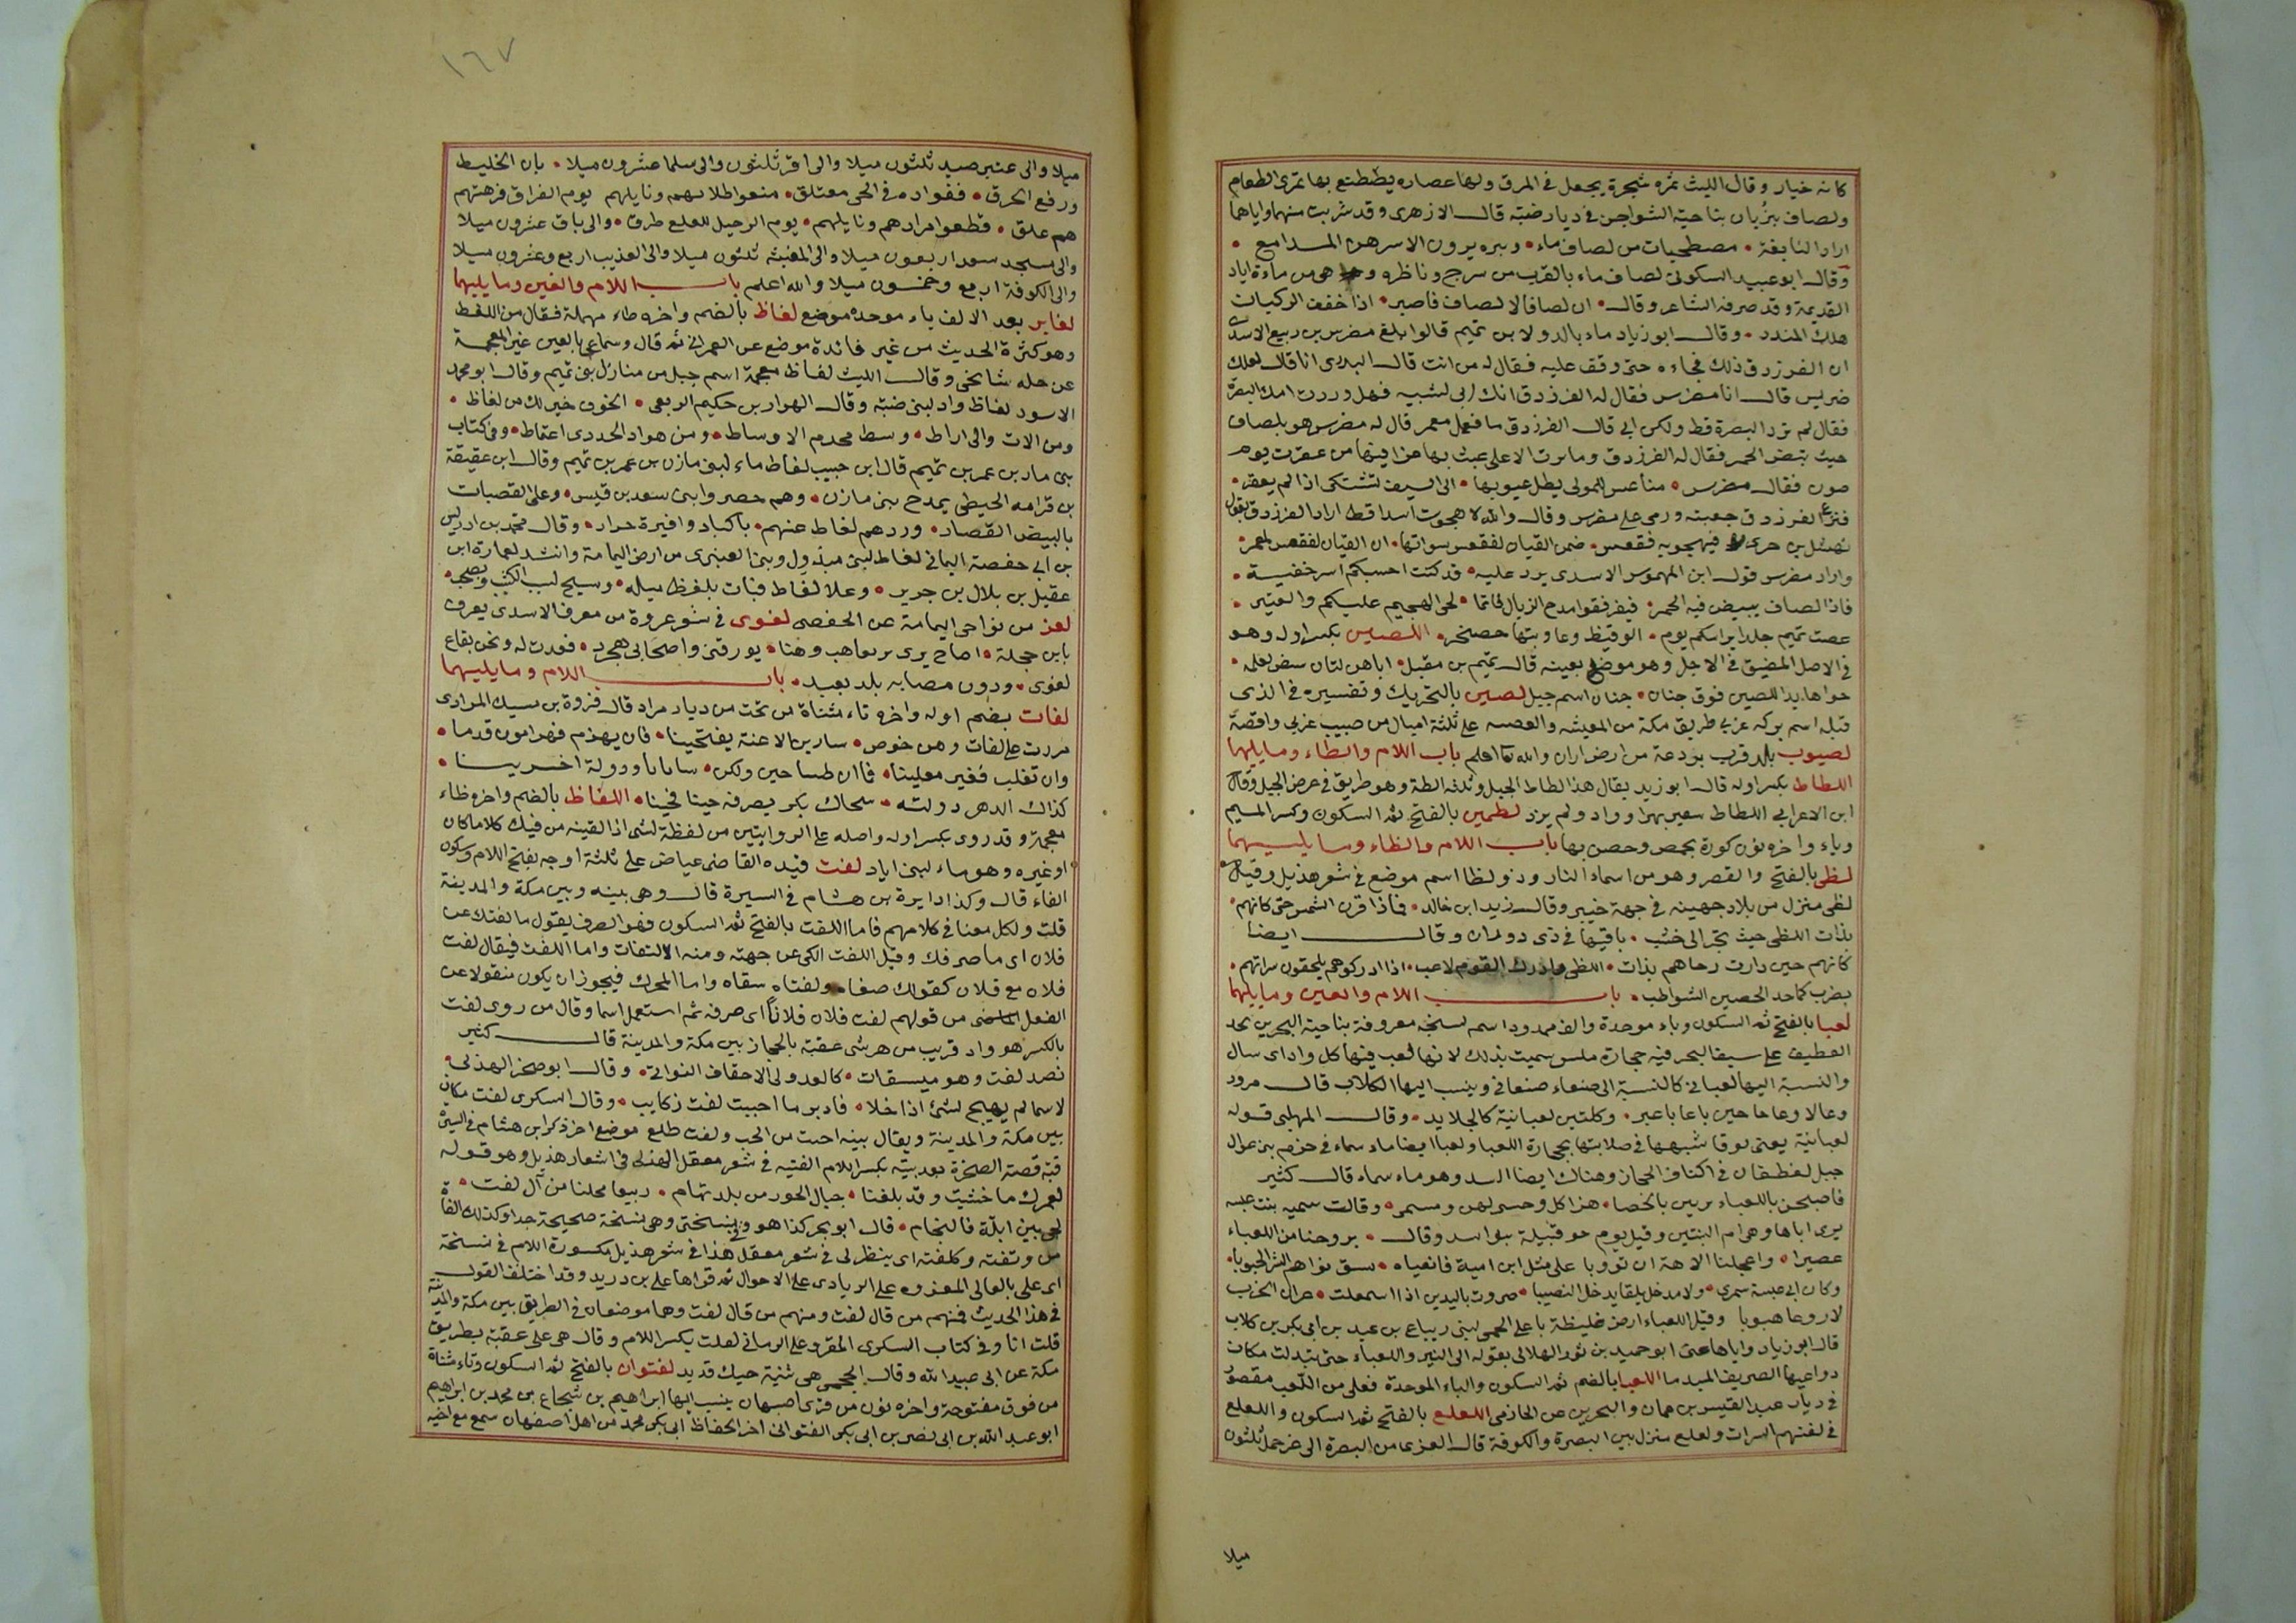 كانه خيار وقال الليث ثمره شجرة يجعل في المرق ولها عصاره يصطبغ بها تمرى الطعام
ولصاف بئران بناحية الشواجن في ديار ضبه قال الازهرى وقد شربت منهما واياها
اراد النابغة • مصطحبات من لصاف ماء • وبره يرون الاسرهن المدامع •
وقال ابو عبيد السكونى لصاف ماء بالقرب من سرج وناظره وهى من مياه اياد
القديمة وقد صرفه الشاعر وقال • ان لصافا لا لصاف فاصبر • اذا خفت الركبات
هلك المندد • وقال ابو زياد ماء بالدو لابن تميم قالوا بلغ مضرس بن ربيع الاسدى
ان الفرزدق ذلك فجاءه حتى وقف عليه فقال له من انت قال البلادى انا قال لعلك
ضريس قال انا مضرس فقال له الفرزدق انك ابى لشبيه فهل وردت امك البصرة
فقال لم ترد البصرة قط ولكن ابى قال الفرزدق ما فعل معمر قال له مضرس هو بلصاف
حيث تبيض الحمر فقال له الفرزدق
فقال مضرس •
فنزع الفرزدق جعبته ورمى على مضرس وقال والله لا هجوت اسدا قط اراد الفرزدق بقول
نهشل بن حرى فيهجو به فقعس • ضمن القيان لفقعس سواتها • ان القيان لفقعس لمعمر •
واراد مضرس قول ابن المهوس الاسدى يرد عليه • قد كنت احسبكم اسر خفية •
فاذا لصاف يبيض فيه الحمر
عصت تميم جلد ايراسكم يوم • الوقيظ وعاوبتها حصنخر • اللصيس بكسر اوله وهو
في الاصل المضيق في الاجل وهو موضع بعينه قال تميم بن مقبل
جنان اسم جبل لصين بالتحريك وتفسيره في الذى
قبله اسم بركه غربى طريق مكة من المغيثه والعصبه على ثلثة اميال من صبيب غربى واقصة
لصيوب بلد قرب بردعة من ارض اران والله تعا اعلم باب اللام والطاء وما يليهما
اللطاط بكسر اوله قال ابو زيد يقال هذا لطاط الجبل وثلثه الطة وهو طريق في عرض الجبل وقال
ابن الاعرابى اللطاط سعير نهرا وواد ولم يزد لطمين بالفتح ثم السكون وكسر الميم
وياء واخره نون كورة بحمص وحصن بها باب اللام والظاء وما يليهما
لظى بالفتح والقصر وهو من اسماء النار وذو لظا اسم موضع في شعر هذيل وقيل
لظى منزل من بلاد جهينه في جهة خيبر وقال زيد ابن خالد • فاذا قرن الشمس حتى كانهم •
بذات اللظى حيث تجر الى خشب • باقيها في ذى دولان وقال ايضا
كانهم حين دارت رحاهم بذات • اللظى وادرك القوم لاعب • اذا ادركوهم يلحقون سراتهم •
بضرب كما حد الحصين الشواطب • باب اللام والعين وما يليها
لعبا بالفتح ثم السكون وباء موحدة والف ممدود اسم لسبخه معروفة بناحية البحرين بحد
القطيف على سيف البحر فيه حجارة ملس سميت بذلك لانها لعب فيها كل واد اى سال
والنسبة اليها لعبانى كالنسبة الى صنعاء صنعانى وينسب اليها الكلاب قال مزرد
وعالا وعاما حين باعا باعبر • وكلتين لعبانية كالجلايد • وقال المهلبى قوله
لعبانية يعنى نوقا شبهها في صلابتها بحجارة اللعبا ولعبا ايضا ماء سماء في حزم بنى عوال
جبل لغطفان في اكناف الحجاز وهناك ايضا السد وهو ماء سماء قال كثير
فاصبحن باللعباء يرمين بالحصا • وقالت سميه بنت عيه
يرى اباها وهى ام البنتين وقيل يوم حو قبيلة بنو اسد وقال • بروحنا من اللعباء
عصيرا • واعجلنا الاهة ان تؤوبا على مثل ابن امية فانعياه • يسق نواهم الشر الجيوبا •
وكان ابى عيسة سمرى • ولا مدخل يلقا يدخل النصيبا • ضروب باليدين اذا اسمعلت • حران الحرب
لا روعا هبوبا وقيل اللعباء ارض غليظة باعلى الحمى لبنى زنباع بن عبد بن ابى بكر بن كلاب
قال ابو زياد واياها عنى ابو حميد بن ثور الهلالى بقوله الى النير واللعباء حتى تبدلت مكان
دواعيها الصريف الميدما اللعبا بالضم ثم السكون والباء الموحدة فعلى من اللعب مقصور
في ديار عبد القيس بن عمان والبحرين عن الحازمى اللعلع بالفتح ثم السكون واللعلع
في لغتهم السراب ولعلع منزل بين البصرة والكوفة قال العزيما من البصرة الى عرجمل ثلثون
ميلا
١٦٧
ميلا والى عنبر صيد ثلثون ميلا والى اقر ثلثون والى سلما عشرون ميلا • بان الخليط
ورفع الحرق • ففواده في الحى معتلق • منعوا طلابهم ونايلهم يوم الفراق فرهنهم
هم علق • قطعوا مرادهم ونايلهم • يوم الرحيل للعلع طرق • والى بارق عشرون ميلا
والى مسجد سعد اربعون ميلا والى المغيثه ثلثون ميلا والى العذيب اربع وعشرون ميلا
والى الكوفة اربع وخمسون ميلا والله اعلم باب اللام والغين وما يليهما
لغابر بعد الالف باء موحدة موضع لغاط بالضم واخره طاء مهملة فقال من اللغط
وهو كثرة الحديث من غير فائدة موضع عن العمرانى ثم قال وسماعى بالعين غير المعجمة
عن جله مشايخى وقال الليث لغاظ معجمة اسم جبل من منازل بنى تميم وقال ابو محمد
الاسود لغاظ واد لبنى ضبه وقال الهوار بن حكيم الربعى • الخوف خير لك من لغاظ •
ومن الات والى اراط • وسط محدم الاوساط • ومن هواد الحددى اعتماط • وفى كتاب
بنى مازن بن عمر بن تميم قال ابن حبيب لغاط ماء لبنى مازن بن عمر بن تميم وقال ابن عقيقة
بن قرامه الحيطى يمدح بنى مازن • وهم حصروا بنى سعد بن قيس • وعلى القصبات
بالبيض القصاد • وردهم لغاط عنهم • باكباد وافيرة حراد • وقال محمد بن ادريس
بن ابى حفصة اليمانى لغاط لبنى مبذول وبنى العنبرى من ارض اليمامة وانشد لعمارة ابن
عقيل بن بلال بن جرير • وعلا لغاط فبات بلغظ سيله • وسيح لبب الكثيب ويصخب •
لعز من نواحى اليمامة عن الحفصى لغوى في شعر عروة من معرف الاسدى يعرف
بابن حجلة • اصاح يرى برىعاهب وهنا • يورقنى واصحابى هجرد • فعدت له ونحن بقاع
لغوى • ودون مصابه بلد بعيد • باب اللام وما يليهما
لفات بضم اوله واخره تاء مثناة من تحت من ديار مراد قال فزوة بن مسيك المرادى
مررت على لفات وهن خوص • سارين الاعنة يفتحينا • فان يهزم فهزامون قدما •
وان تغلب فغير مغلبينا • فاان طبنا جبن ولكن • منايانا ودولة اخرينا •
كذاك الدهر دولته • سجال بكر يصرفه حينا فحينا • اللفاظ بالضم واخره ظاء
معجمة وقد روى بكسر اوله واصله على الروايتين من لفظة لشى اذا القيته من فيك كلاما كان
او غيره وهو ماء لبنى اياد لفت قيده القاضى عياض على ثلثة اوجه بفتح اللام وسكون
الفاء قال وكذا ايرة بن هشام في السيرة قال وهى بينه وبين مكة والمدينة
قلت ولكل معنا في كلامهم فاما اللفت بالفتح ثم السكون فهو الصرف يقول ما لفتك عن
فلان اى ما صرفك وقيل اللفت الكى عن جهته ومنه الالتفات واما اللفت فيقال لفت
فلان مع فلان كقولك صفاه ولفتاه سقاه واما المحرك فيجوز ان يكون منقولا عن
الفعل الماضى من قولهم لفت فلان فلانا اى صرفه ثم استعمل اسما وقال من روى لفت
بالكسر هو واد قريب من هرشى عقبة بالحجاز بين مكة والمدينة قال كثير
نصد لفت وهو ميسقات • كالعدولى الاحقاف النوالى • وقال ابو صخر الهذلى •
لاسما لم يهيج لشئ اذا خلا • فادبر ما احببت لفت زكايب • وقال السكرى لفت مكان
بين مكة والمدينة ويقال بينه احبت من الحب ولفت طلع موضع اخر ذكر ابن هشام في السيرة
قبة قصته الصخرة بعد بيته بكسر اللام الفتيه في شعر معقل الهذلى في اشعار هذيل وهو قوله
لعمرك ما خشيت وقد بلغنا • جبال الحور من بلد تهام • ربيعا محلنا من آل لفت •
لحى بين ابلة فالنجام • قال ابو بحر كذا هو في نسختى وهى نسخة صحيحة جدا وكذلك الفاة
من وثقته وكلفته اى ينظر لى في شعر معقل هذا في شعر هذيل مكسورة اللام في نسخة
ابى على بالعالى المعزوه على الريادى على الاحوال ثم قراها على بن دريد وقد اختلف القول
في هذا الحديث فمنهم من قال لفت ومنهم من قال لفت وهما موضعان في الطريق بين مكة والمدينة
قلت انا وفى كتاب السكرى المقرو على الرمانى لعلت بكسر اللام وقال هى على عقبة بطريق
مكة عن ابى عبيد الله وقال الجمحى هى ثنية حيك قديد لفتوان بالفتح ثم السكون وتاء مثناة
من فوق مفتوحة واخره نون من قرى اصبهان ينسب اليها ابراهيم بن شجاع بن محمد بن ابراهيم
ابو عبد الله بن ابى نصر بن ابى بكر الفتوانى اخر الحفاظ ابى بكر محمد من اهل اصفهان سمع مع اخيه